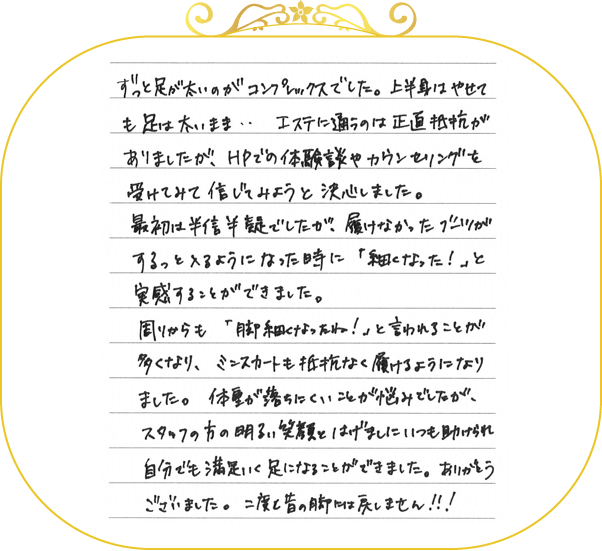 ずっと足が太いのがコンプレックスでした。上半身はやせて
も足は太いまま‥ エステに通うのは正直抵抗が
ありましたが、HPでの体験談やカウンセリングを
受けてみて信じてみようと決心しました。
最初は半信半疑でしたが、履けなかったブーツが
するっと入るようになった時に「細くなった！」と
実感することができました。
周りからも「脚細くなったね！」と言われることが
多くなり、ミニスカートも抵抗なく履けるようになり
ました。体重が落ちにくいことが悩みでしたが、
スタッフの方の明るい笑顔とはげましにいつも助けられ
自分でも満足いく足になることができました。ありがとう
ございました。二度と昔の脚には戻しません!!!